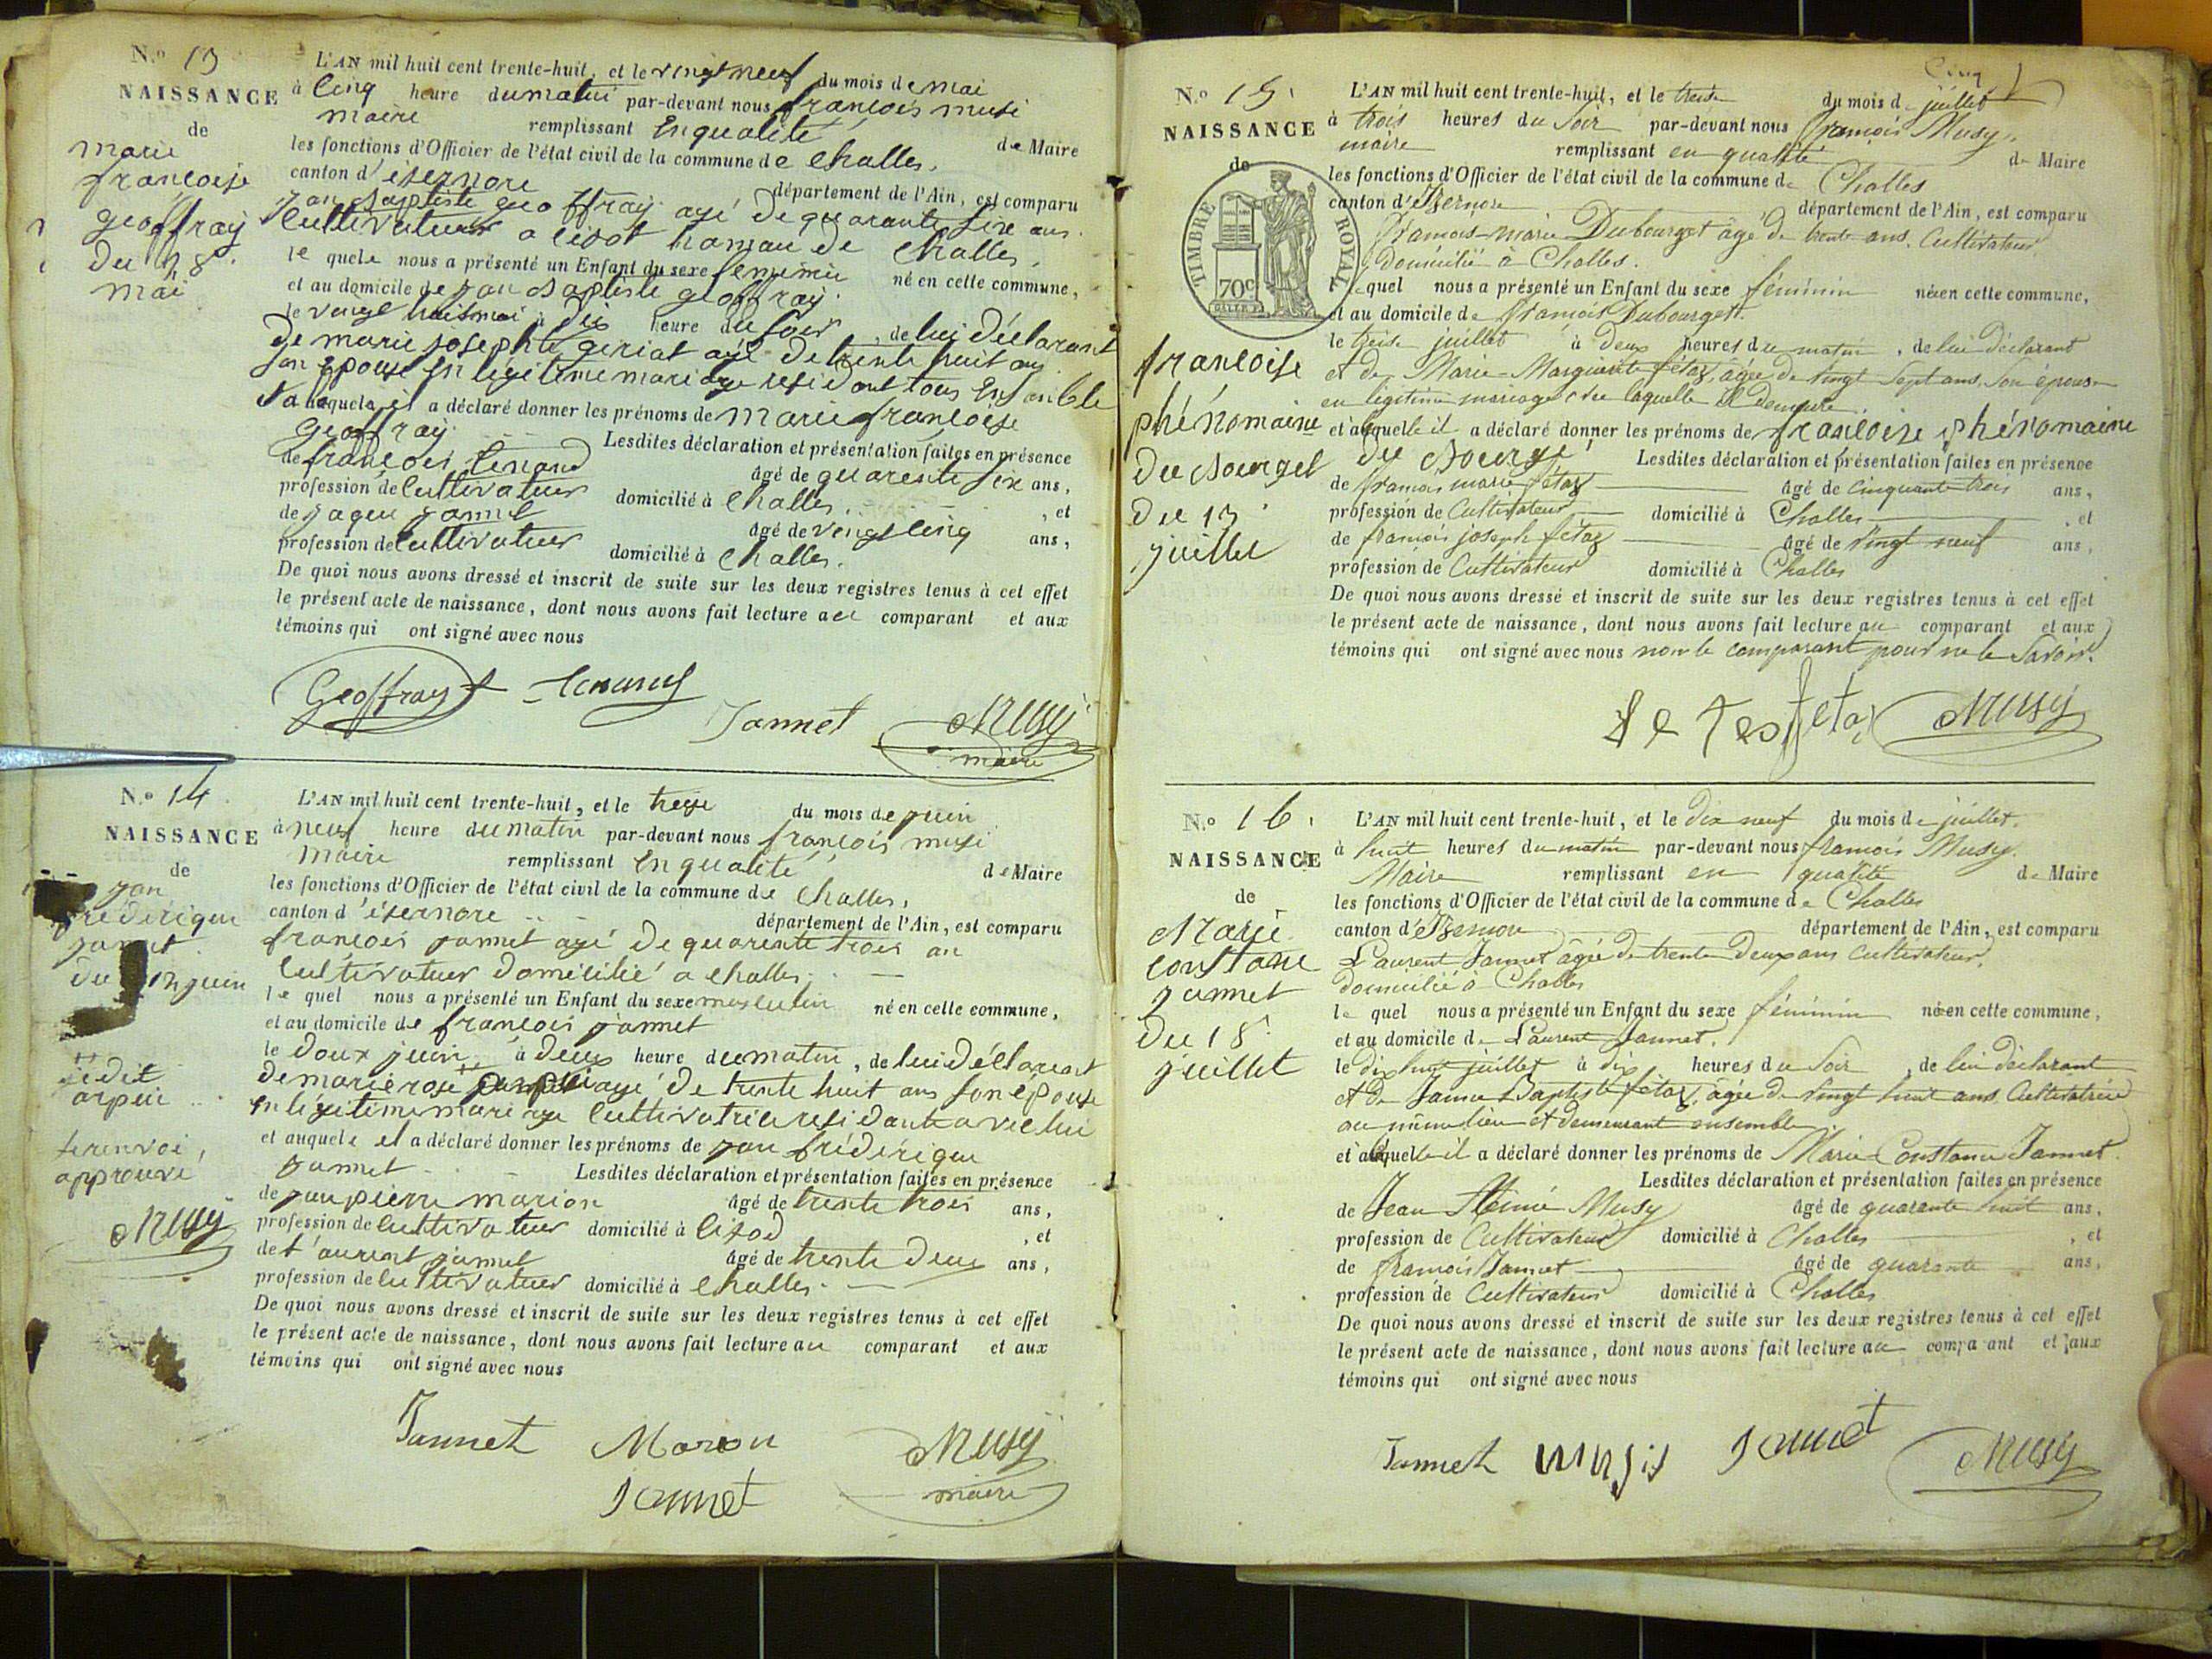 N.o 13
NAISSANCE
de
marie
francoise
geoffray
du 28
mai
L'AN mil huit cent trente-huit, et le vingt neuf du mois de mai
à cinq heure du matin par-devant nous francois musi
maire remplissant en qualité de Maire
les fonctions d'Officier de l'état civil de la commune de Challes,
canton d'isernore département de l'Ain, est comparu
jan Baptiste geoffray agé de quarante six ans
cultivateur a hameau de Challes,
le quele nous a présenté un Enfant du sexe feminin né en cette commune,
et au domicile de jan Baptiste geoffray
le vingt huit mai à dix heure du soir, de lui déclarant
de marie josephte agé de trente huit ans
son épouse en légitime mariage residant tous ensemble
a laquele el a déclaré donner les prénoms de marie francoise
geoffray Lesdites déclaration et présentation faites en présence
de francois tenand âgé de quarente six ans,
profession de cultivateur domicilié à Challes, et
de jaque jannet âgé de vengt cinq ans,
profession de cultivateur domicilié à Challes.
De quoi nous avons dressé et inscrit de suite sur les deux registres tenus à cet effet
le présent acte de naissance, dont nous avons fait lecture au comparant et aux
témoins qui ont signé avec nous
Geoffray tenand
Jannet Musy
maire
N.o 14
NAISSANCE
de
jan
fréderique
jannet
du 12 juin
je dit
arpin
le renvoi,
approuvé
Musy
L'AN mil huit cent trente-huit, et le treize du mois de juin
à neuf heure du matin par-devant nous francois musi
maire remplissant en qualité de Maire
les fonctions d'Officier de l'état civil de la commune de Challes,
canton d'isernore département de l'Ain, est comparu
francois jannet agé de quarente trois an
cultivateur domicilié a challes
le quel nous a présenté un Enfant du sexe masculin né en cette commune,
et au domicile de francois jannet
le doux juin à deux heure du matin, de lui déclarant
de marie rose agé de trente huit ans son épouse
en légitime mariage cultivatrice residante avec lui
et auquele el a déclaré donner les prénoms de jan fréderique
jannet Lesdites déclaration et présentation faites en présence
de jan pierre marion âgé de trente trois ans,
profession de cultivateur domicilié à lizod, et
de laurent jannet âgé de trente deux ans,
profession de cultivateur domicilié à Challes.
De quoi nous avons dressé et inscrit de suite sur les deux registres tenus à cet effet
le présent acte de naissance, dont nous avons fait lecture au comparant et aux
témoins qui ont signé avec nous
Jannet Marion Musy
Jannet maire
Cinq
N.o 15.
NAISSANCE
de
TIMBRE ROYAL
70c
francoise
phénomaine
du Bourget
du 13
juillet
L'AN mil huit cent trente-huit, et le treize du mois de juillet
à trois heures du soir par-devant nous françois Musy,
maire remplissant en qualité de Maire
les fonctions d'Officier de l'état civil de la commune de Challes
canton d'Isernore département de l'Ain, est comparu
françois-marie Dubourget âgé de trente ans, Cultivateur
domicilié à Challes.
le quel nous a présenté un Enfant du sexe féminin née en cette commune,
et au domicile de françois Dubourget.
le treize juillet à deux heures du matin, de lui déclarant
et de Marie-Marguerite fétaz, âgée de vingt sept ans, son épouse
en légitime mariage avec laquelle il demeure.
et a laquelle il a déclaré donner les prénoms de francoise phénomaine
du Bourgé Lesdites déclaration et présentation faites en présence
de françois marie fétaz âgé de cinquante trois ans,
profession de Cultivateur domicilié à Challes, et
de françois joseph fétaz âgé de vingt neuf ans,
profession de Cultivateur domicilié à Challes
De quoi nous avons dressé et inscrit de suite sur les deux registres tenus à cet effet
le présent acte de naissance, dont nous avons fait lecture au comparant et aux
témoins qui ont signé avec nous non le comparant pour ne le savoir.
fetaz Musy
N.o 16.
NAISSANCE
de
Marie
constane
jannet
du 18
juillet
L'AN mil huit cent trente-huit, et le dix neuf du mois de juillet.
à huit heures du matin par-devant nous françois Musy.
Maire remplissant en qualité de Maire
les fonctions d'Officier de l'état civil de la commune de Challes
canton d'Isernore département de l'Ain, est comparu
Laurent Jannet âgé de trente deux ans cultivateur,
domicilié à Challes
le quel nous a présenté un Enfant du sexe féminin née en cette commune,
et au domicile de Laurent Jannet.
le dix huit juillet à dix heures du soir, de lui déclarant
et de Jeanne Baptiste fétaz, âgée de vingt huit ans, Cultivatrice
au même lieu et demeurant ensemble
et a laquelle il a déclaré donner les prénoms de Marie Constance Jannet.
Lesdites déclaration et présentation faites en présence
de Jean Musy âgé de quarante huit ans,
profession de Cultivateur domicilié à Challes, et
de françois Jannet âgé de quarante ans,
profession de Cultivateur domicilié à Challes
De quoi nous avons dressé et inscrit de suite sur les deux registres tenus à cet effet
le présent acte de naissance, dont nous avons fait lecture au comparant et aux
témoins qui ont signé avec nous
Jannet Jannet Musy